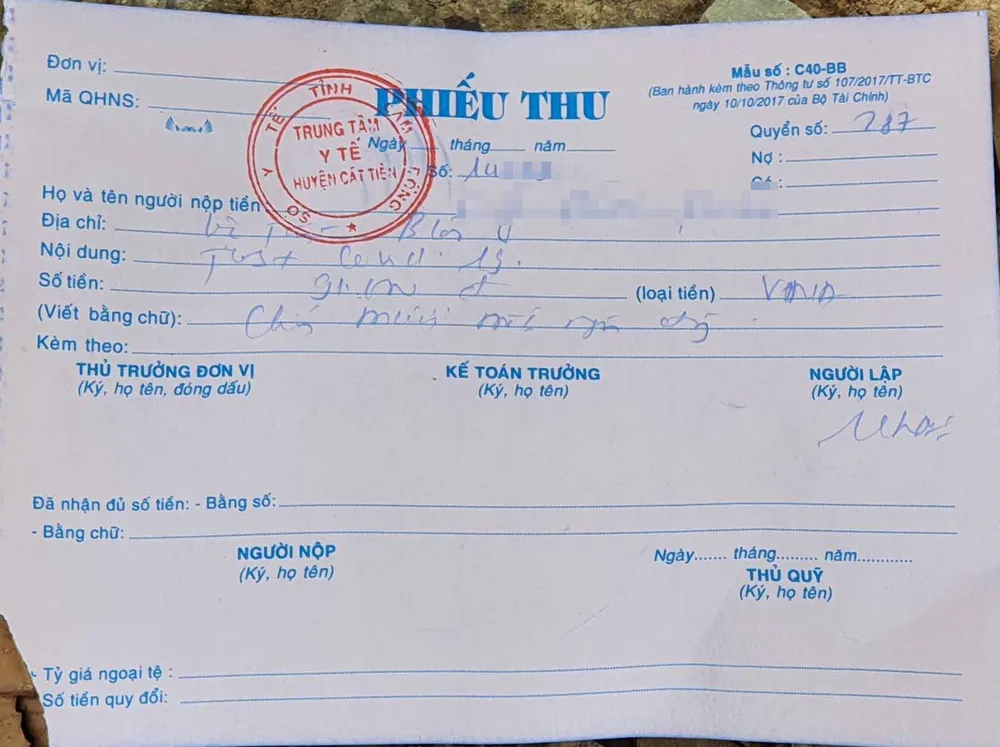 Đơn vị:
Mã QHNS:
SỞ Y TẾ TỈNH LÂM ĐỒNG
TRUNG TÂM
Y TẾ
HUYỆN CÁT TIÊN
PHIẾU THU
Ngày tháng năm
Số: 14
Mẫu số : C40-BB
(Ban hành kèm theo Thông tư số 107/2017/TT-BTC
ngày 10/10/2017 của Bộ Tài Chính)
Quyển số: 287
Nợ :
Có :
Họ và tên người nộp tiền
Địa chỉ:
Nội dung: Test
Số tiền: đ (loại tiền) VNĐ
(Viết bằng chữ): Chín mươi mốt
Kèm theo:
THỦ TRƯỞNG ĐƠN VỊ
(Ký, họ tên, đóng dấu)
KẾ TOÁN TRƯỞNG
(Ký, họ tên)
NGƯỜI LẬP
(Ký, họ tên)
Đã nhận đủ số tiền: - Bằng số:
- Bằng chữ:
NGƯỜI NỘP
(Ký, họ tên)
Ngày....... tháng......... năm............
THỦ QUỸ
(Ký, họ tên)
- Tỷ giá ngoại tệ :
Số tiền quy đổi: